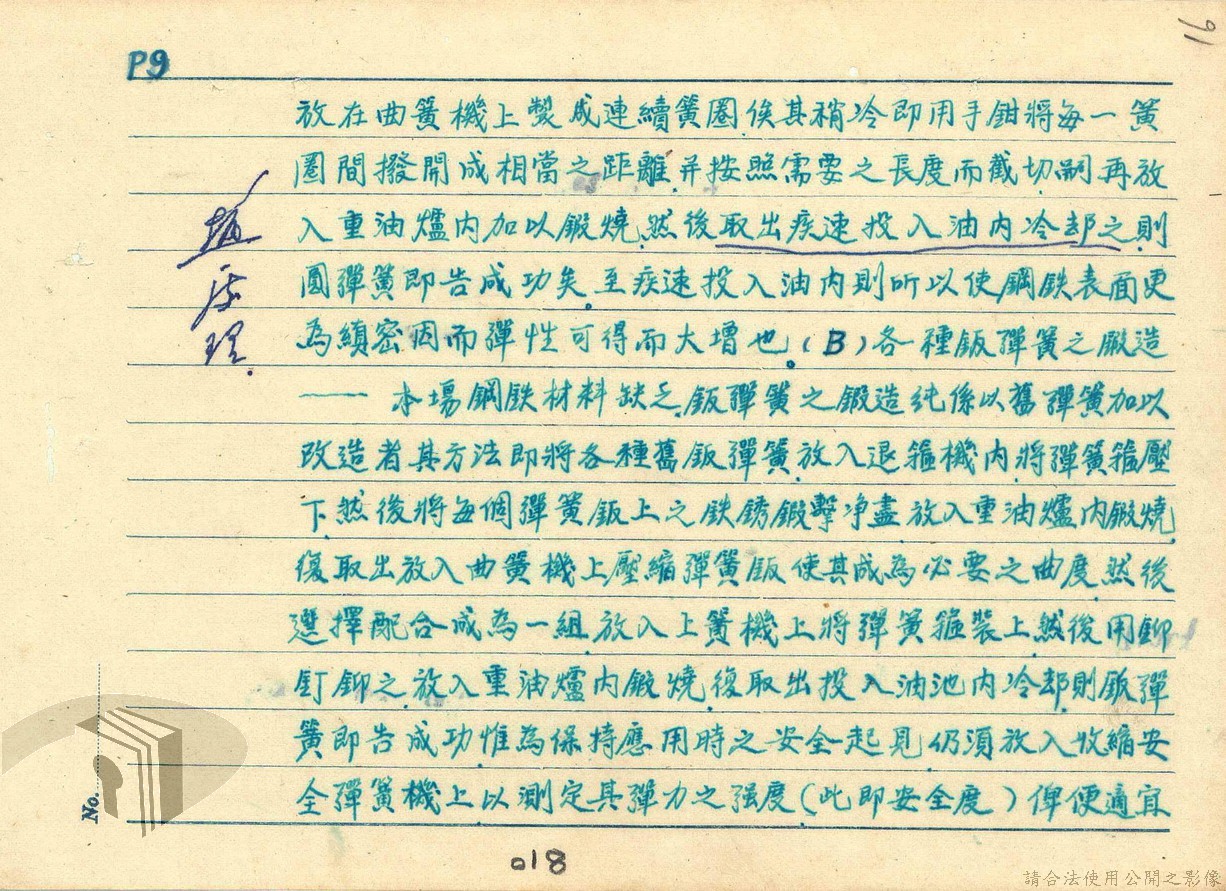 P9
91
放在曲簧機上製成連續簧圈,俟其稍冷即用手鉗將每一簧
圈間撥開成相當之距離,并按照需要之長度而截切嗣再放
入重油爐內加以鍛燒,然後取出疾速投入油內冷却之,則
圓彈簧即告成功矣。至疾速投入油內則所以使鋼鉄表面更
為縝密因而彈性可得而大增也。(B)各種鈑彈簧之鍛造
——本場鋼鉄材料缺乏,鈑彈簧之鍛造純係以舊彈簧加以
改造者其方法即將各種舊鈑彈簧,放入退箍機內,將彈簧箍壓
下,然後將每個彈簧鈑上之鉄銹鍛擊净盡,放入重油爐內鍛燒,
復取出放入曲簧機上壓縮彈簧鈑,使其成為必要之曲度,然後
選擇配合成為一組,放入上簧機上將彈簧箍裝上,然後用鉚
釘鉚之,放入重油爐內鍛燒,復取出投入油池內冷却,則鈑彈
簧即告成功,惟為保持應用時之安全起見,仍須放入收縮安
全彈簧機上以測定其彈力之强度(此即安全度)俾便適宜
處理.
No.
018
請合法使用公開之影像